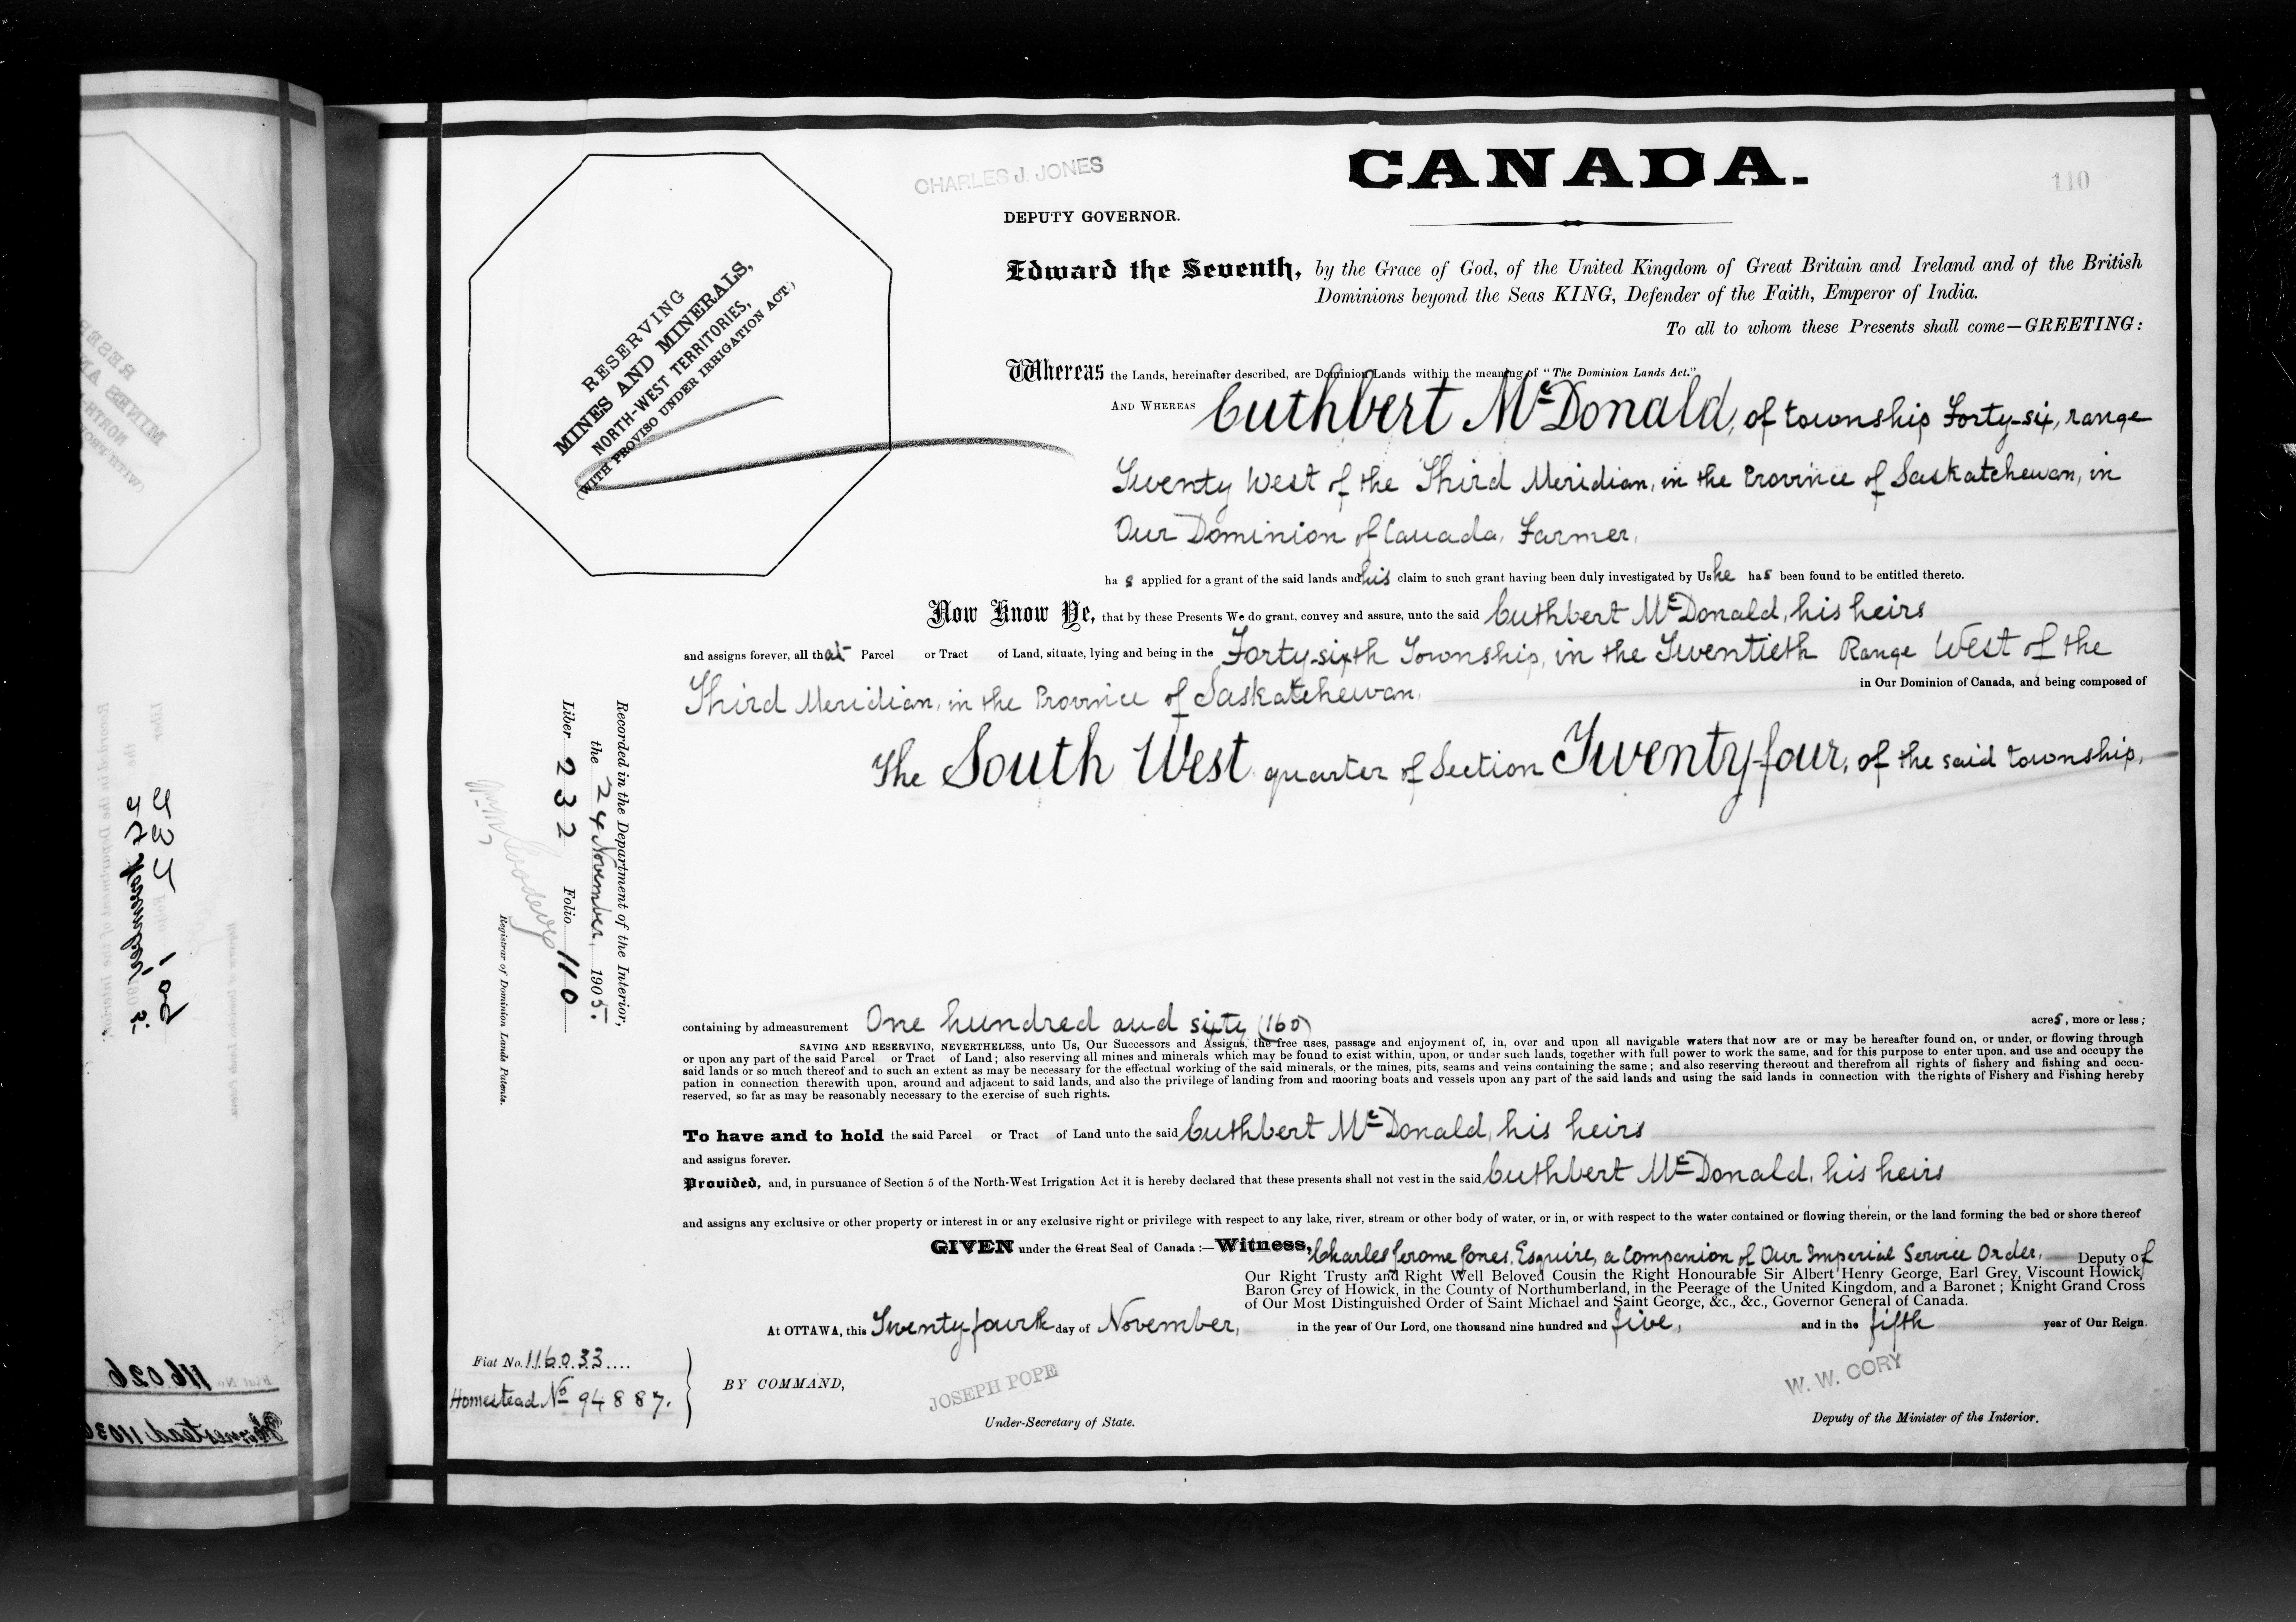 CHARLES J. JONES
CANADA.
110
DEPUTY GOVERNOR.
RESERVING
MINES AND MINERALS,
NORTH-WEST TERRITORIES,
(WITH PROVISO UNDER IRRIGATION ACT)
Edward the Seventh, by the Grace of God, of the United Kingdom of Great Britain and Ireland and of the British
Dominions beyond the Seas KING, Defender of the Faith, Emperor of India.
To all to whom these Presents shall come—GREETING:
Whereas the Lands, hereinafter described, are Dominion Lands within the meaning of "The Dominion Lands Act."
AND WHEREAS Cuthbert McDonald, of township Forty-six, range
Twenty West of the Third Meridian, in the Province of Saskatchewan, in
Our Dominion of Canada, Farmer,
has applied for a grant of the said lands and his claim to such grant having been duly investigated by Us he has been found to be entitled thereto.
Now Know Ye, that by these Presents We do grant, convey and assure, unto the said Cuthbert McDonald, his heirs
and assigns forever, all that Parcel or Tract of Land, situate, lying and being in the Forty-sixth Township, in the Twentieth Range West of the
Third Meridian, in the Province of Saskatchewan,
in Our Dominion of Canada, and being composed of
The South West quarter of Section Twenty-four, of the said township,
Recorded in the Department of the Interior,
the 24 November, 1905.
Liber 232 Folio 110
Registrar of Dominion Lands Patents.
containing by admeasurement One hundred and sixty (160) acres, more or less;
SAVING AND RESERVING, NEVERTHELESS, unto Us, Our Successors and Assigns, the free uses, passage and enjoyment of, in, over and upon all navigable waters that now are or may be hereafter found on, or under, or flowing through
or upon any part of the said Parcel or Tract of Land; also reserving all mines and minerals which may be found to exist within, upon, or under such lands, together with full power to work the same, and for this purpose to enter upon, and use and occupy the
said lands or so much thereof and to such an extent as may be necessary for the effectual working of the said minerals, or the mines, pits, seams and veins containing the same; and also reserving thereout and therefrom all rights of fishery and fishing and occu-
pation in connection therewith upon, around and adjacent to said lands, and also the privilege of landing from and mooring boats and vessels upon any part of the said lands and using the said lands in connection with the rights of Fishery and Fishing hereby
reserved, so far as may be reasonably necessary to the exercise of such rights.
To have and to hold the said Parcel or Tract of Land unto the said Cuthbert McDonald, his heirs
and assigns forever.
Provided, and, in pursuance of Section 5 of the North-West Irrigation Act it is hereby declared that these presents shall not vest in the said Cuthbert McDonald, his heirs
and assigns any exclusive or other property or interest in or any exclusive right or privilege with respect to any lake, river, stream or other body of water, or in, or with respect to the water contained or flowing therein, or the land forming the bed or shore thereof
GIVEN under the Great Seal of Canada:—Witness, Charles Jerome Jones, Esquire, a Companion of Our Imperial Service Order, Deputy of
Our Right Trusty and Right Well Beloved Cousin the Right Honourable Sir Albert Henry George, Earl Grey, Viscount Howick,
Baron Grey of Howick, in the County of Northumberland, in the Peerage of the United Kingdom, and a Baronet; Knight Grand Cross
of Our Most Distinguished Order of Saint Michael and Saint George, &c., &c., Governor General of Canada.
At OTTAWA, this Twenty-fourth day of November, in the year of Our Lord, one thousand nine hundred and five, and in the fifth year of Our Reign.
Fiat No. 116033
Homestead No 94887.
BY COMMAND,
JOSEPH POPE
Under-Secretary of State.
W. W. CORY
Deputy of the Minister of the Interior.